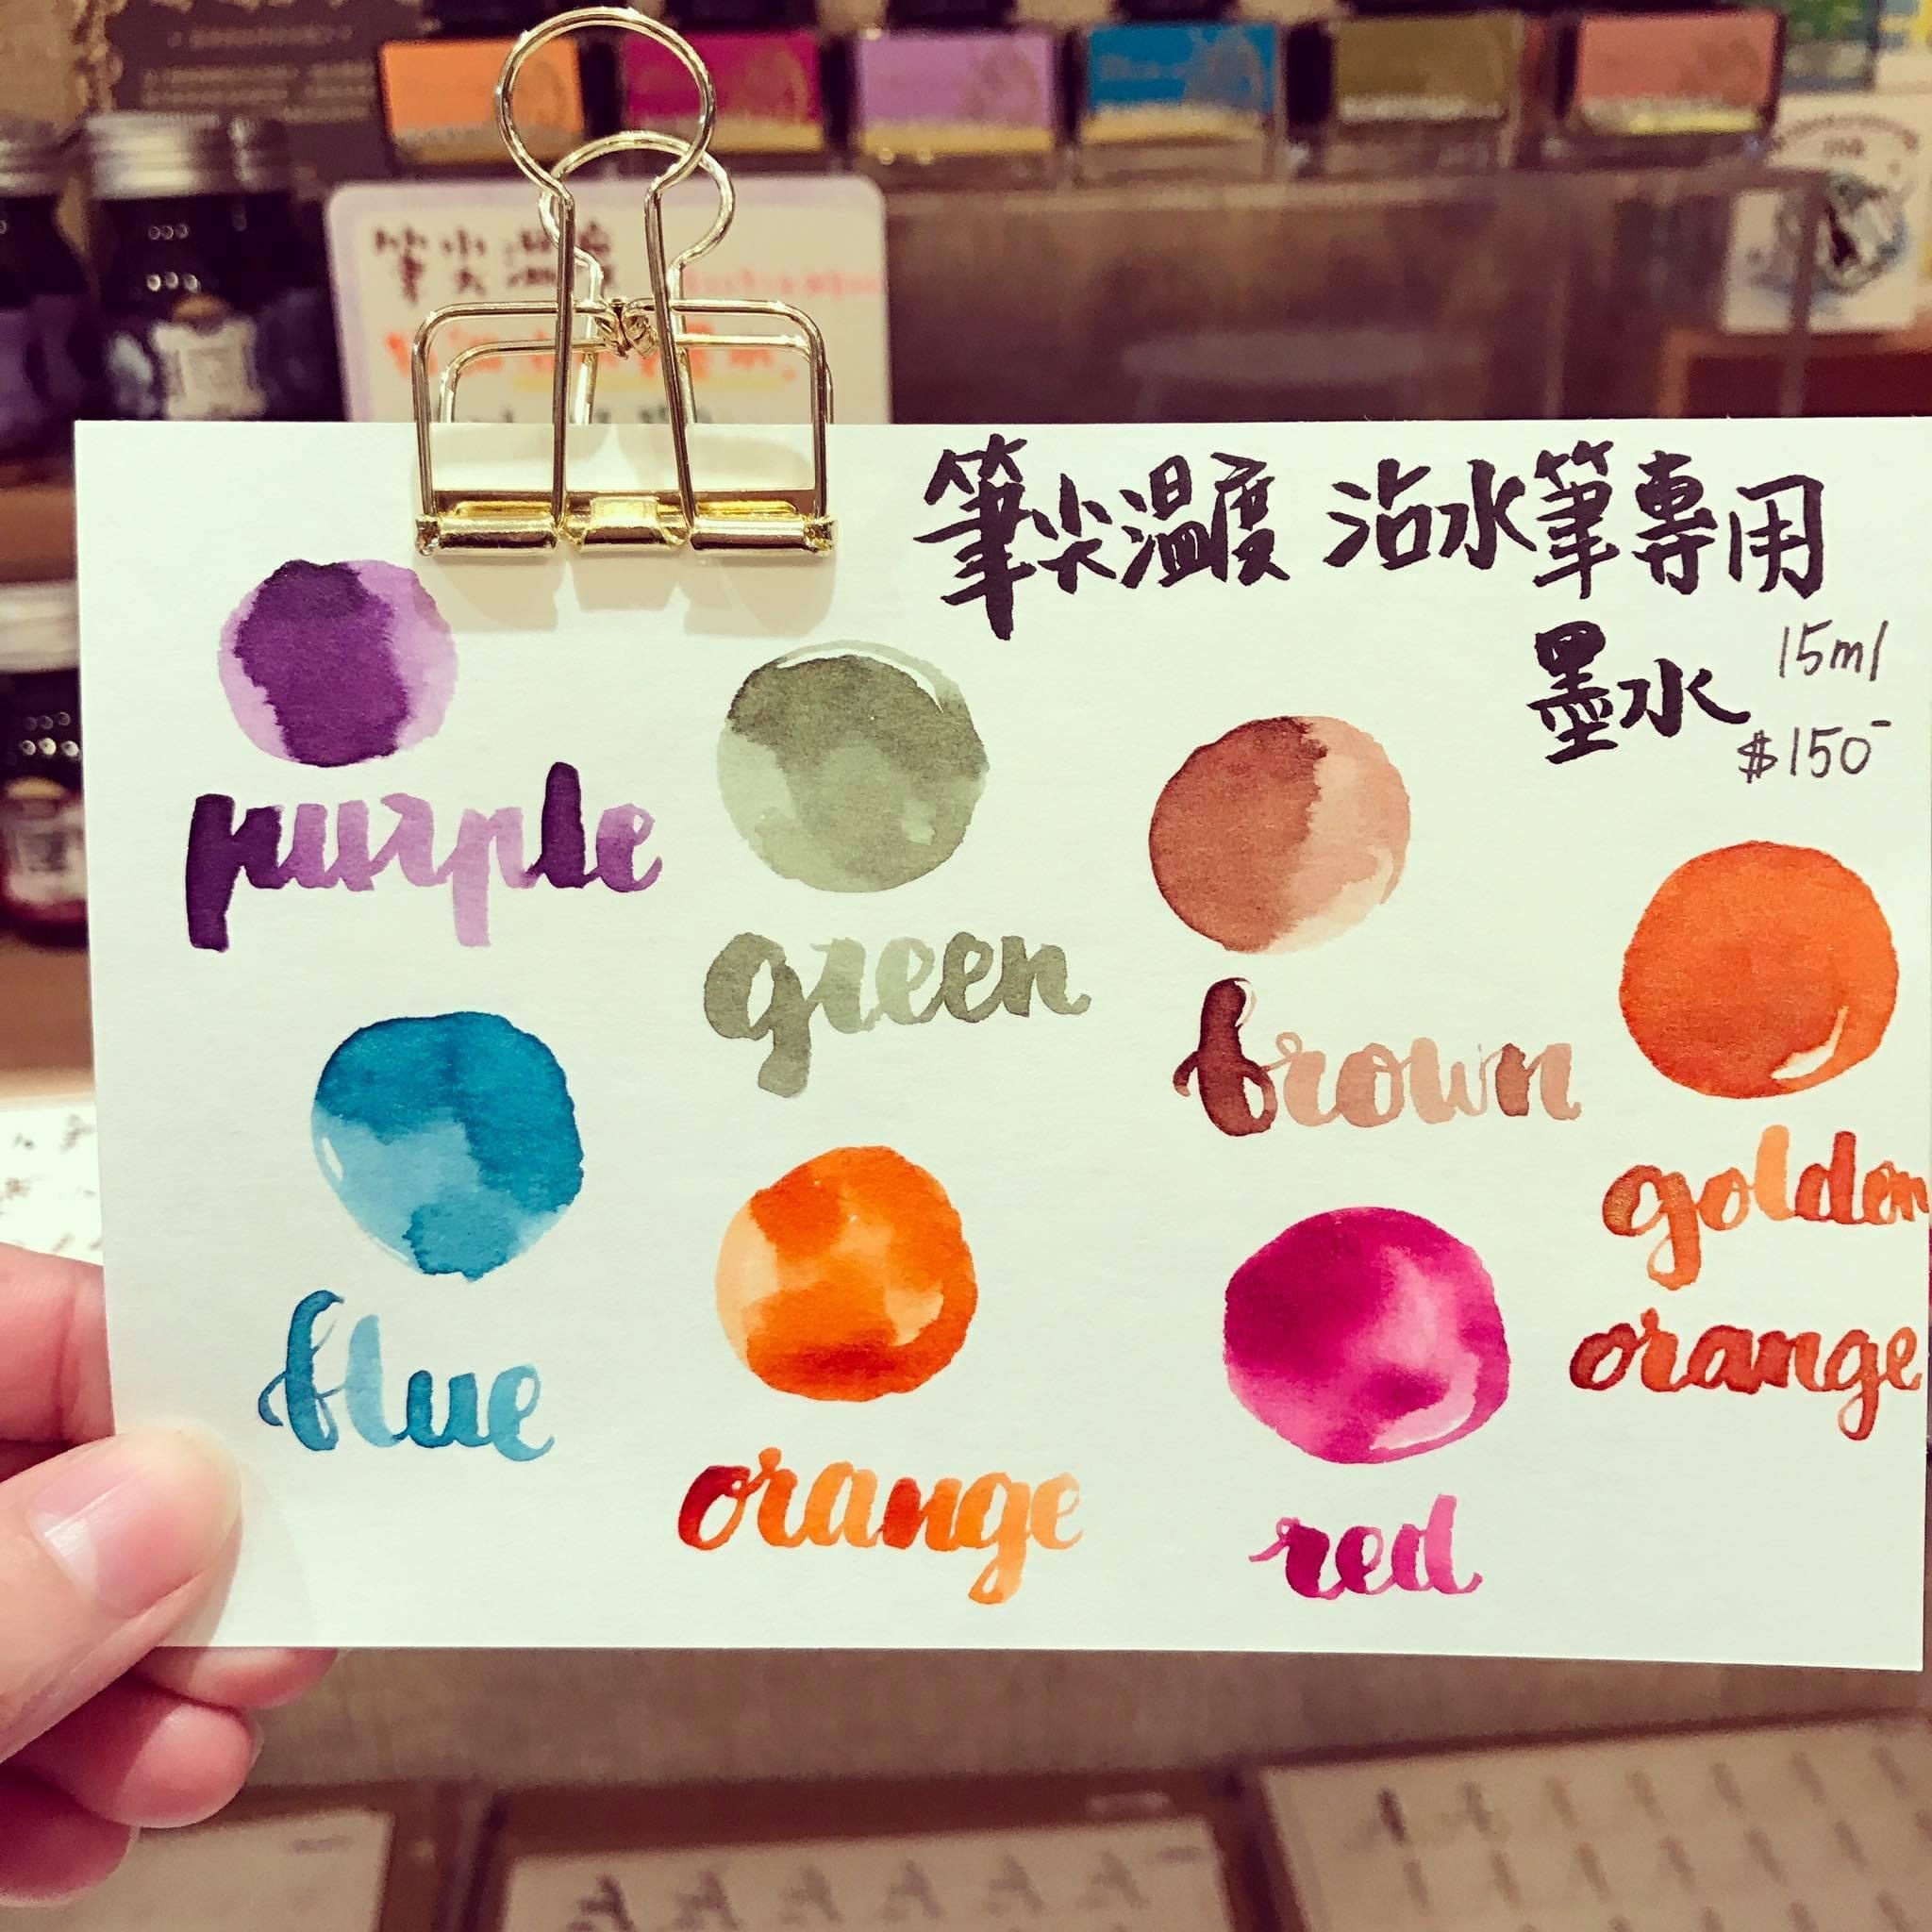 筆尖溫度
筆尖溫度 沾水筆專用
墨水 15ml
$150-
purple
green
brown
golden
orange
blue
orange
red